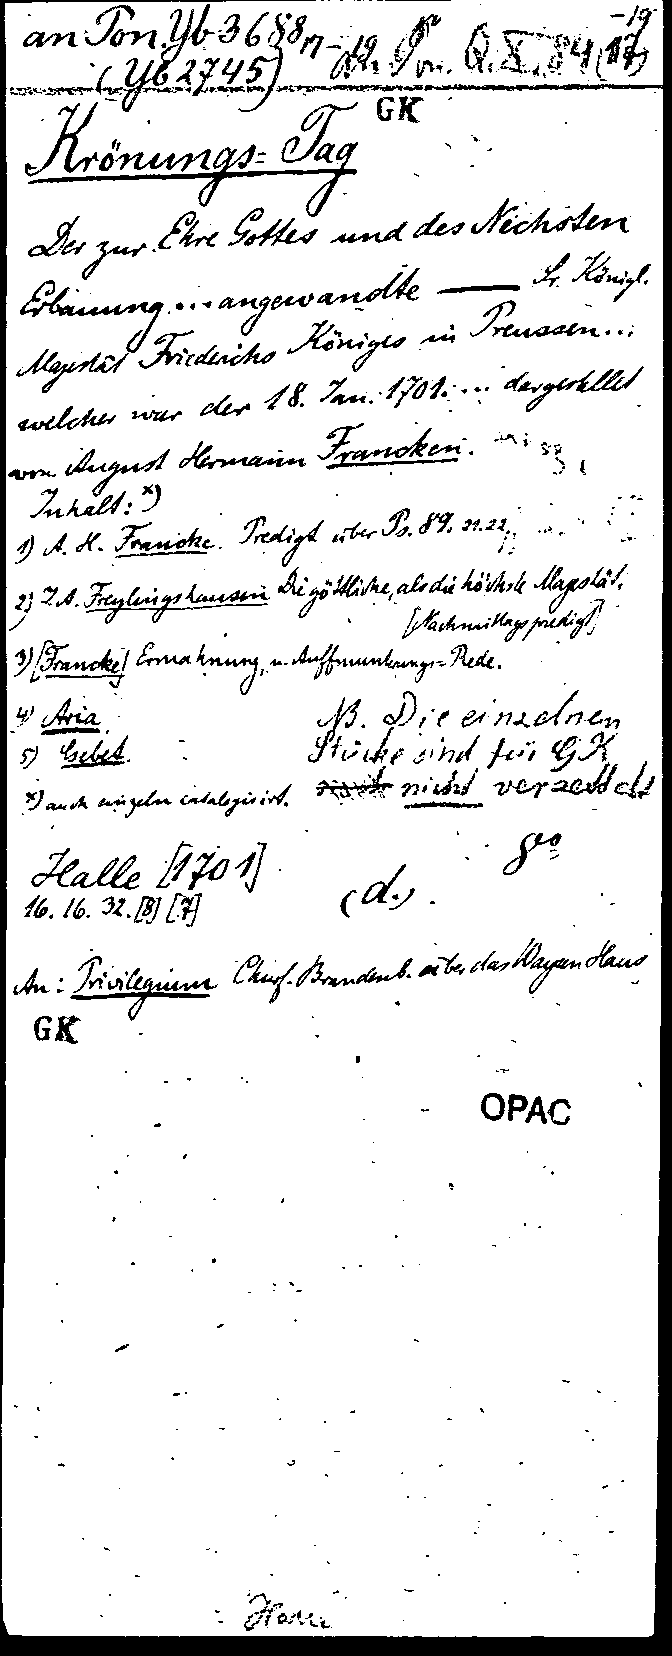 an Pon. Yb 3688, 17-19
(Yb 2745)
an Pon. QK. X, 84 (17)
-19
GK
Krönungs=Tag
Der zur Ehre Gottes und des Nechsten
Erbauung ... angewandte — Sr. Königl.
Majestät Friederichs Königes in Preussen...
welcher war der 18. Jan. 1701. ... dargestellet
von August Hermann Francken.
Inhalt: x)
1) A. H. Francke. Predigt über Ps. 89. 21.22.
2) J. A. Freylingshausen Die göttliche, als die höchste Majestät.
[Nachmittagspredigt]
3) [Francke] Ermahnung, u. Auffmunterungs=Rede.
4) Aria.
5) Gebet.
NB. Die einzelnen
Stücke sind für GK
nicht verzettelt
x) auch einzeln catalogisirt.
Halle [1701]
8vo
16. 16. 32. [8] [7]
(d.).
An: Privilegium Churf. Brandenb. über das Waysen Haus
GK
OPAC